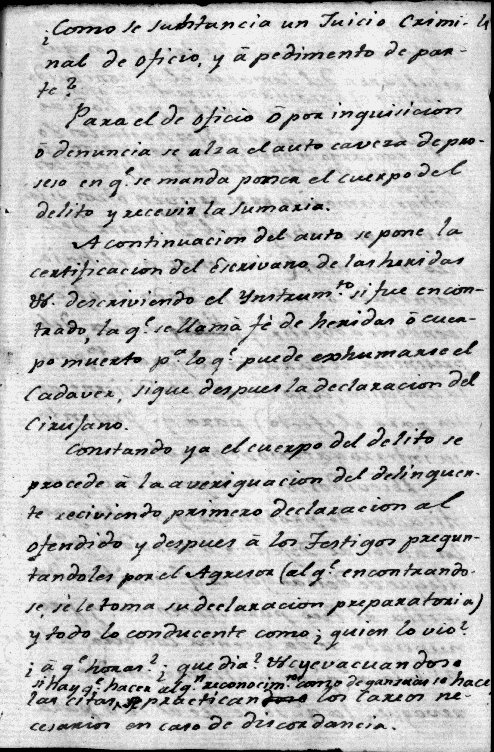 ¿Como se substancia un Juicio Crimi-
nal de oficio, y á pedimento de par-
te?
Para el de oficio ó por inquisicion
ó denuncia se alza el auto caveza de pro-
seso en q.e se manda poner el cuerpo del
delito y recevir la sumaria.
A continuacion del auto se pone la
certificacion del Escrivano de las heridas
&. descriviendo el Ynstrum.to si fue encon-
trado, la q.e se llama fé de heridas ó cuer-
po muerto p.a lo q.e puede exhumarse el
Cadaver, sigue despues la declaracion del
Cirujano.
Constando ya el cuerpo del delito se
procede á la averiguacion del delinquen-
te reciviendo primero declaracion al
ofendido y despues á los Testigos pregun-
tandoles por el Agresor (al q.e encontrando-
se, se le toma su declaracion preparatoria)
y todo lo conducente como ¿quien lo vio?
¿á q.e horas? ¿que dia? &c y evacuandose
si hay q.e hacer alg.n reconocim.to como de ganzuas se hace
las citas, se practican los careos ne-
cesarios en caso de discordancia.